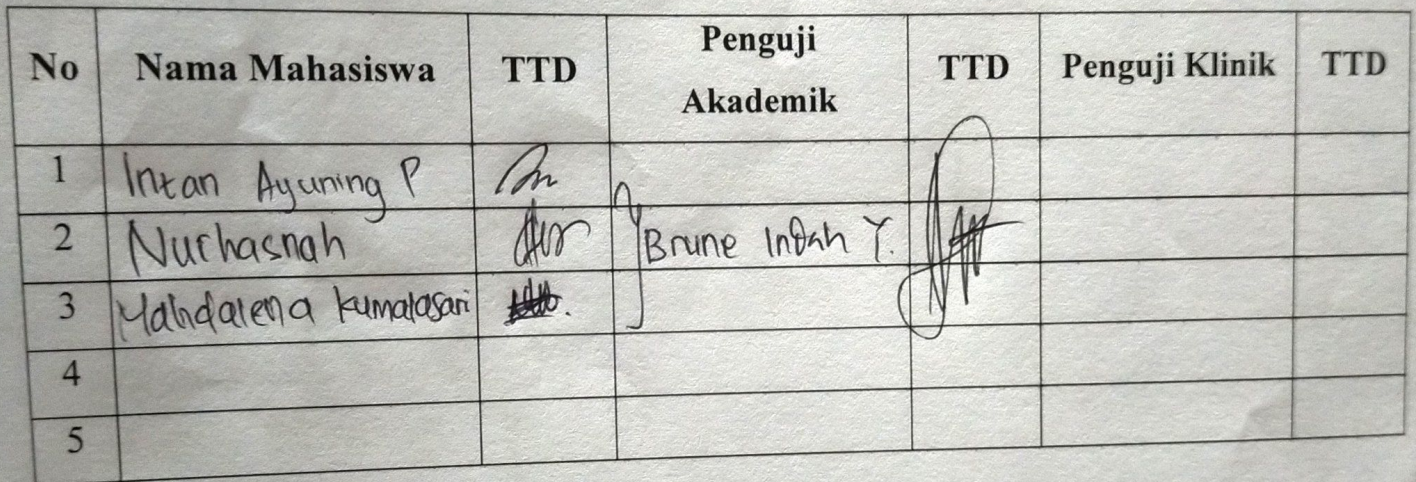 No Nama Mahasiswa TTD Penguji Akademik TTD Penguji Klinik TTD
1 Intan Ayuning P
2 Nurhasnah Brune Indah Y.
3 Kumalasari
4
5